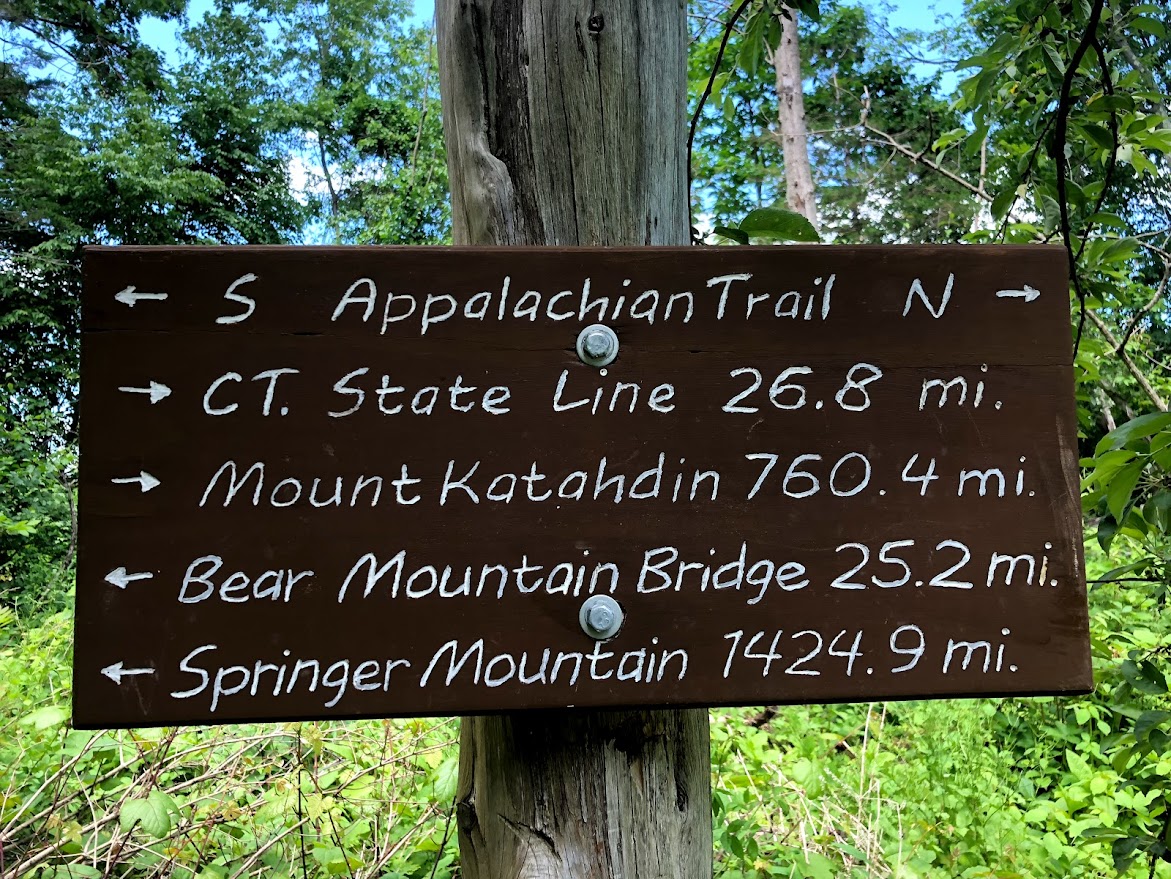 ← S Appalachian Trail N →
→ CT. State Line 26.8 mi.
→ Mount Katahdin 760.4 mi.
← Bear Mountain Bridge 25.2 mi.
← Springer Mountain 1424.9 mi.